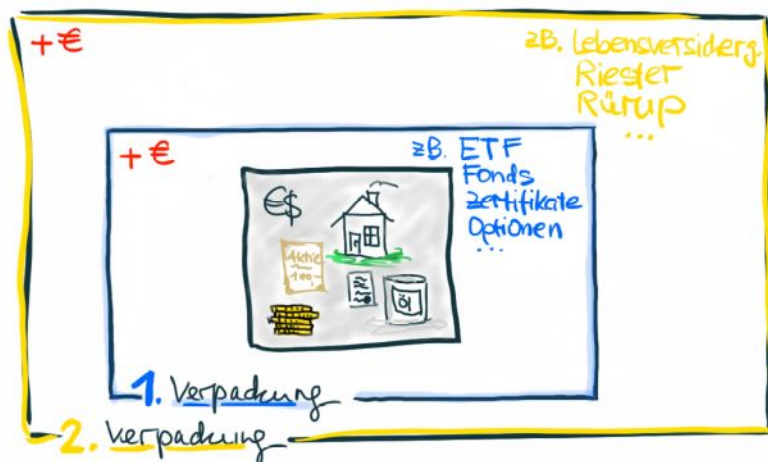 +€
zB. Lebensversicherg.
Riester
Rürup
...
+€
zB. ETF
Fonds
Zertifikate
Optionen
...
€$
Aktie
100,-
Öl
1. Verpackung
2. Verpackung